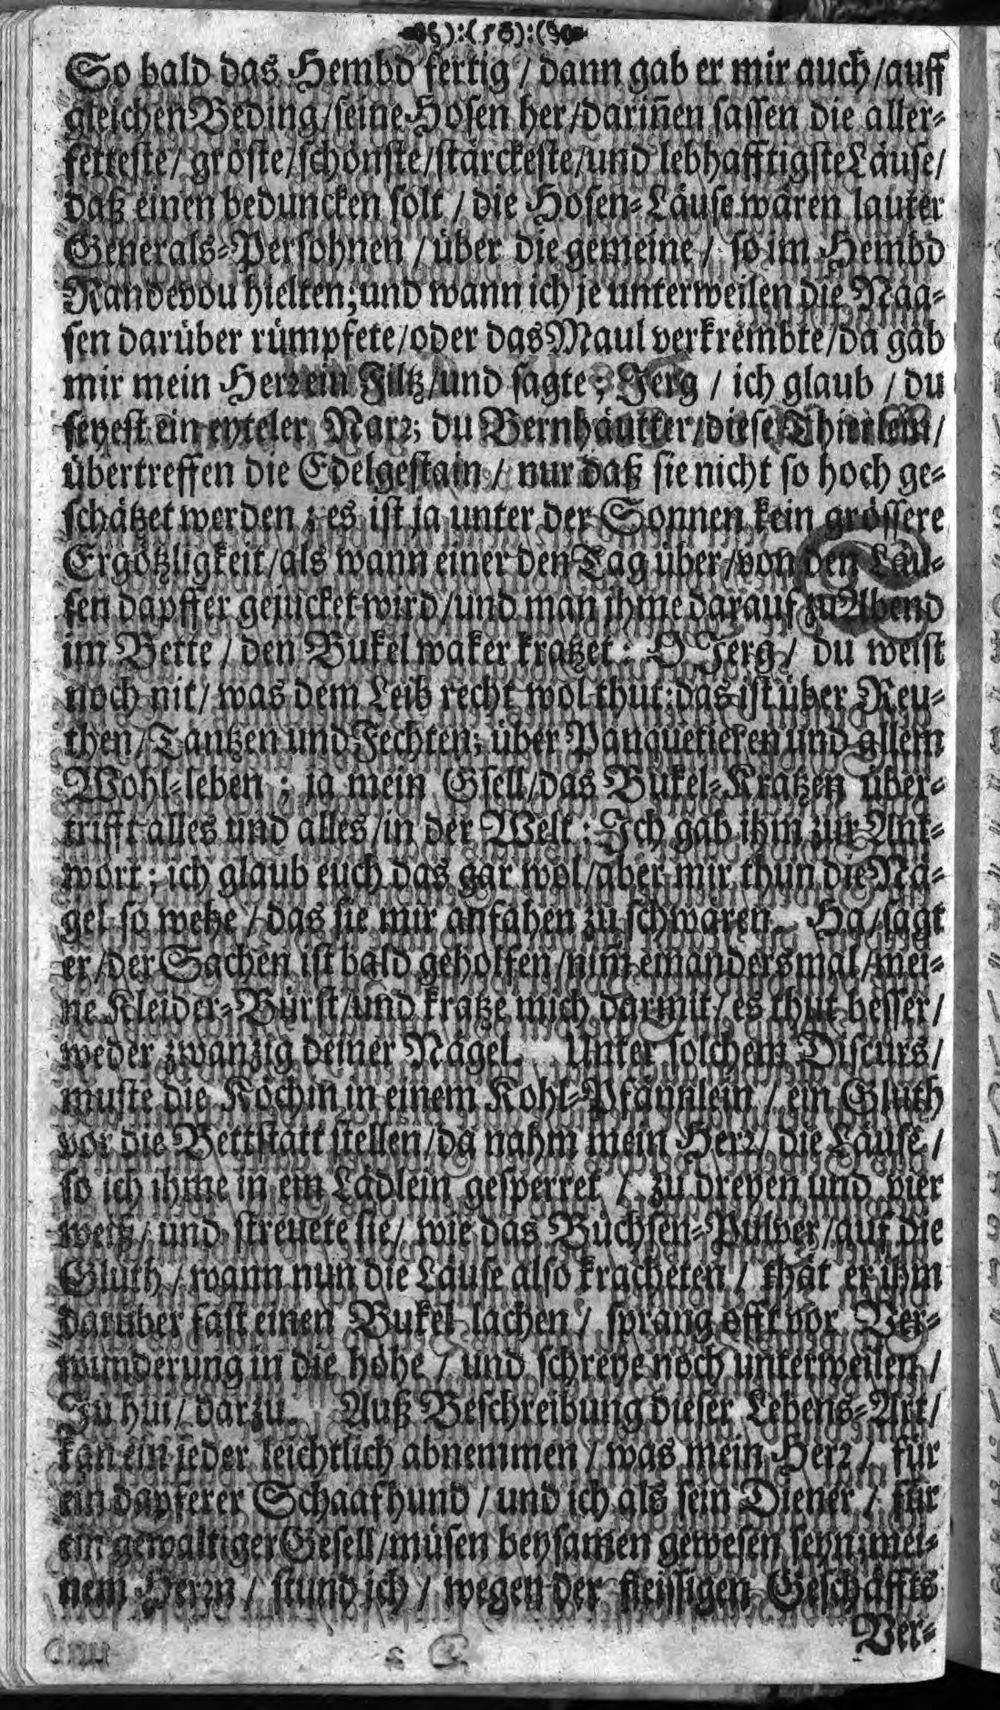 ):(58):(
So bald das Hembd fertig / dann gab er mir auch / auff
gleichen Beding / seine Hosen her / dariñen sassen die aller-
fetteste / gröste / schönste / stärckeste / und lebhafftigste Läuse /
daß einen beduncken solt / die Hosen-Läuse wären lauter
Generals-Persohnen / über die gemeine / so im Hembd
Randevou hielten; und wann ich je unterweilen die Naa-
sen darüber rümpfete / oder das Maul verkrembte / da gab
mir mein Herr ein Filtz / und sagte; Jerg / ich glaub / du
seyest ein eyteler Narr; du Bernhäutter / diese Thierlein /
übertreffen die Edelgestain / nur daß sie nicht so hoch ge-
schätzet werden; es ist ja unter der Sonnen kein grössere
Ergötzligkeit / als wann einer den Tag über / von den Läu-
sen dapffer gejucket wird / und man ihme darauf zu Abend
im Bette / den Bukel waker kratzet: O Jerg / du weist
noch nit / was dem Leib recht wol thut: das ist über Reu-
then / Tantzen und Fechten; über Panquetieren und allem
Wohl-leben; ja mein Gsell / das Bukel-Kratzen über-
trifft alles und alles / in der Welt: Ich gab ihm zur Ant-
wort; ich glaub euch das gar wol / aber mir thun die Nä-
gel so wehe / das sie mir anfahen zu schwären. Ha / sagt
er / der Sachen ist bald geholffen / nim̃ ein andersmal / mei-
ne Kleider-Bürst / und kratze mich darmit / es thut besser /
weder zwanzig deiner Nägel. Unter solchem Discurs /
muste die Köchin in einem Kohl-Pfännlein / ein Gluth
vor die Bettstatt stellen / da nahm mein Herr / die Läuse /
so ich ihme in ein Lädlein gesperret / zu dreyen und vier
weiß / und streuete sie / wie das Büchsen-Pulver / auf die
Gluth / wann nun die Läuse also kracheten / thät er ihm
darüber fast einen Bukel lachen / sprang offt vor Ver-
wunderung in die höhe / und schreye noch unterweilen /
Ju hui / darzu. Auß Beschreibung dieser Lebens-Art /
kan ein jeder leichtlich abnemmen / was mein Herr / für
ein dapferer Schaafhund / und ich als sein Diener / für
ein gewaltiger Gesell / müsen beysam̃en gewesen seyn; mei-
nem Herrn / stund ich / wegen der fleissigen Geschäffts
Ver-